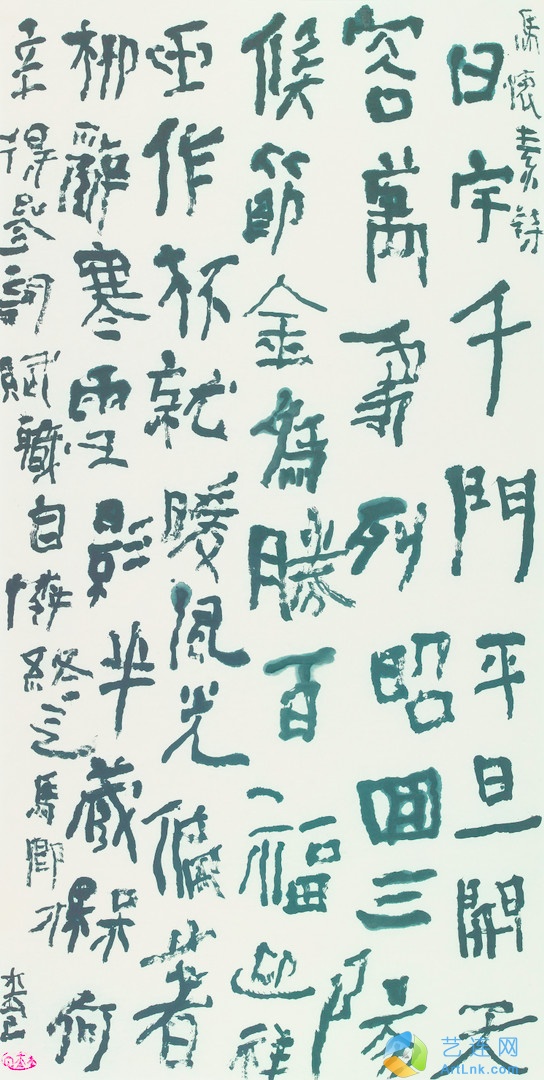 馬懷素詩
日宇千門平旦開天
容萬象列昭回三陽
候節金爲勝百福迎祥
玉作杯就暖風光偏著
柳辭寒雪影半藏槑何
幸得參詞賦職自憐終乏馬卿才
艺连网
ArtLnk.com